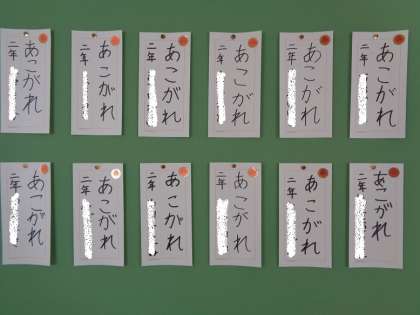 あこがれ
二年
あこがれ
二年
あこがれ
二年
あこがれ
二年
あこがれ
二年
あこがれ
二年
あこがれ
二年
あこがれ
二年
あこがれ
二年
あこがれ
二年
あこがれ
二年
あこがれ
二年